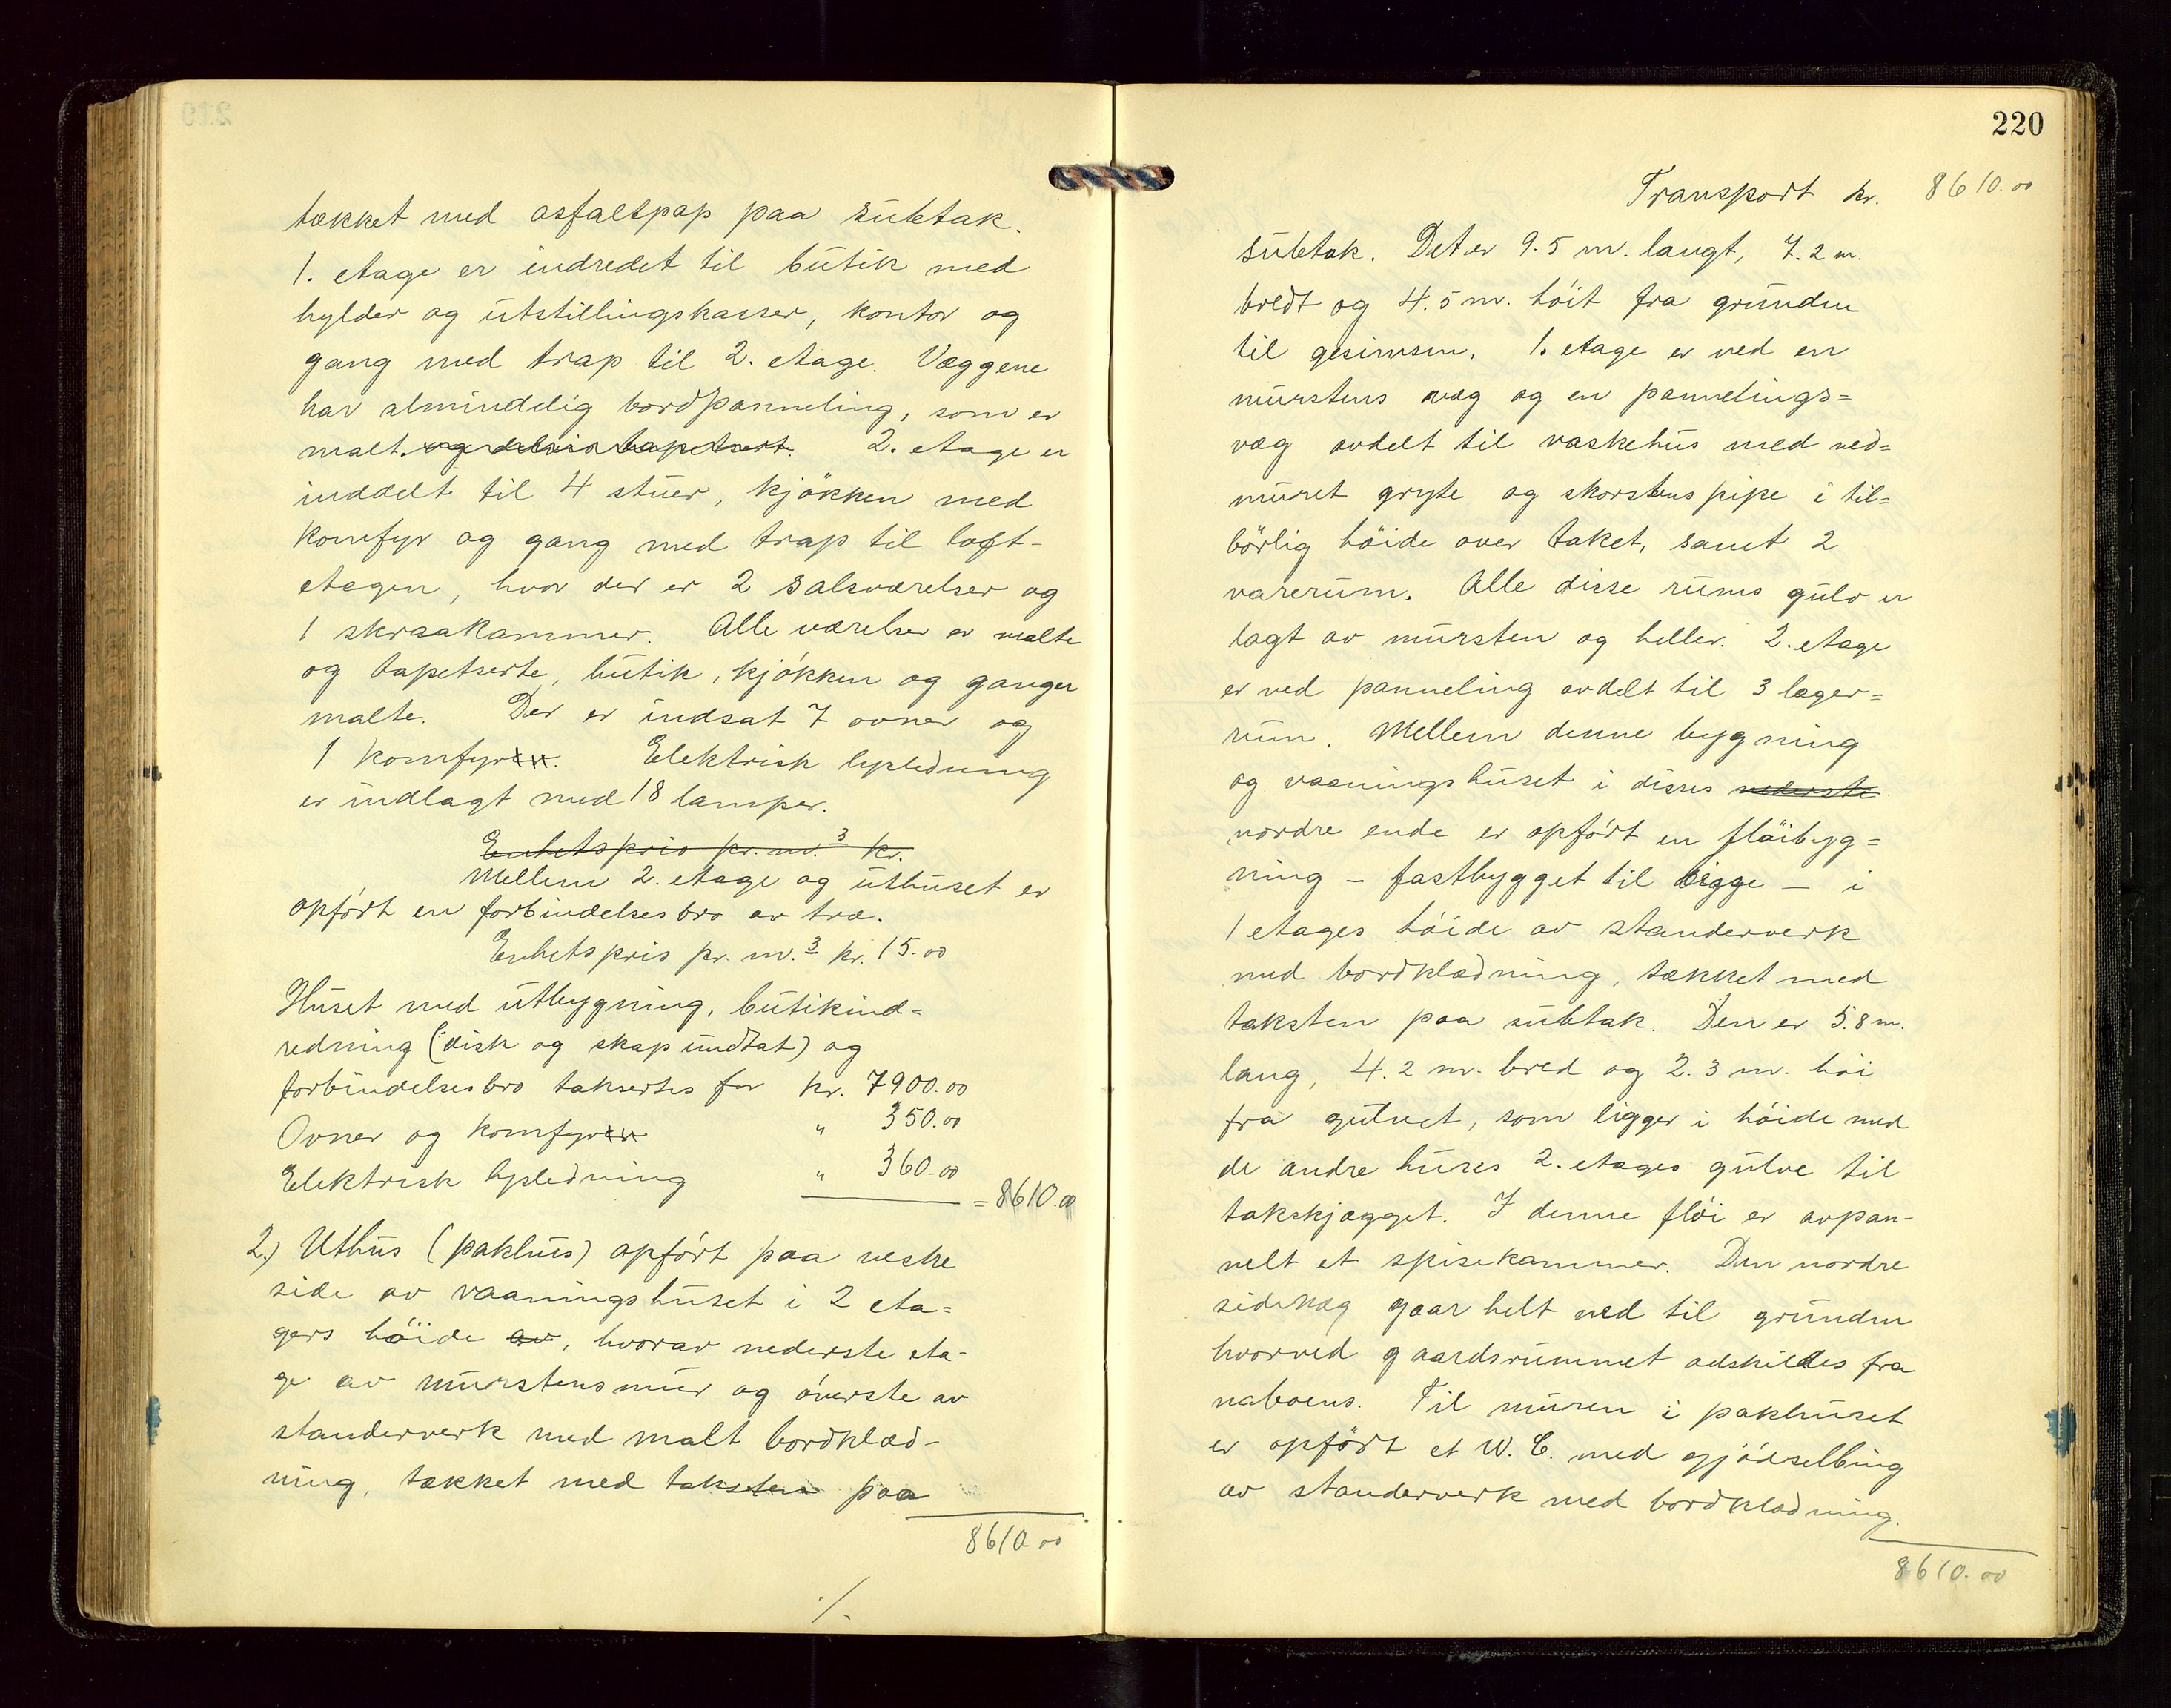 tækket med asfaltpap paa sutak.
1. etage er indredet til butik med
hylder og utstillingskasser, kontor og
gang med trap til 2. etage. Væggene
har almindelig bordpanneling, som er
malt. og delvis tapetsert. 2. etage er
inddelt til 4 stuer, kjøkken med
komfyr og gang med trap til loft-
etagen, hvor der er 2 salsværelser og
1 skraakammer. Alle værelser er malte
og tapetserte, butik, kjøkken og ganger
malte. Der er indsat 7 ovner og
1 komfyrer. Elektrisk lysledning
er indlagt med 18 lamper.
Enhetspris pr. m.³ kr.
Mellem 2. etage og uthuset er
opført en forbindelsesbro av træ.
Enhetspris pr. m.³ kr. 15.00
Huset med utbygning, butikind=
redning (disk og skap undtat) og
forbindelsesbro taksertes for kr. 7900.00
Ovner og komfyrer " 350.00
Elektrisk lysledning " 360.00
= 8610.00
2.) Uthus (pakhus) opført paa vestre
side av vaaningshuset i 2 eta=
gers høide av, hvorav nederste eta-
ge av murstensmur og øverste av
standerverk med malt bordklæd-
ning, tækket med taksten paa
8610.00
./.
220
Transport kr. 8610.00
sutak. Det er 9.5 m. langt, 7.2 m.
bredt og 4.5 m. høit fra grunden
til gesimsen. 1. etage er ved en
murstens væg og en pannelings=
væg avdelt til vaskehus med ned=
muret gryte og skorstens pipe i til=
børlig høide over taket, samt 2
varerum. Alle disse rums gulv er
lagt av mursten og heller. 2. etage
er ved panneling avdelt til 3 lager=
rum. Mellem denne bygning
og vaaningshuset i disses nederste
nordre ende er opført en fløibyg=
ning – fastbygget til begge – i
1 etages høide av standerverk
med bordklædning, tækket med
taksten paa sutak. Den er 5.8 m.
lang, 4.2 m. bred og 2.3 m. høi
fra gulvet, som ligger i høide med
de andre huses 2. etages gulve til
takskjægget. I denne fløi er avpan-
nelt et spisekammer. Den nordre
sidevæg gaar helt ned til grunden
hvorved gaardsrummet adskilles fra
naboens. Til muren i pakhuset
er opført et W. C. med gjødselbing
av standerverk med bordklædning.
8610.00